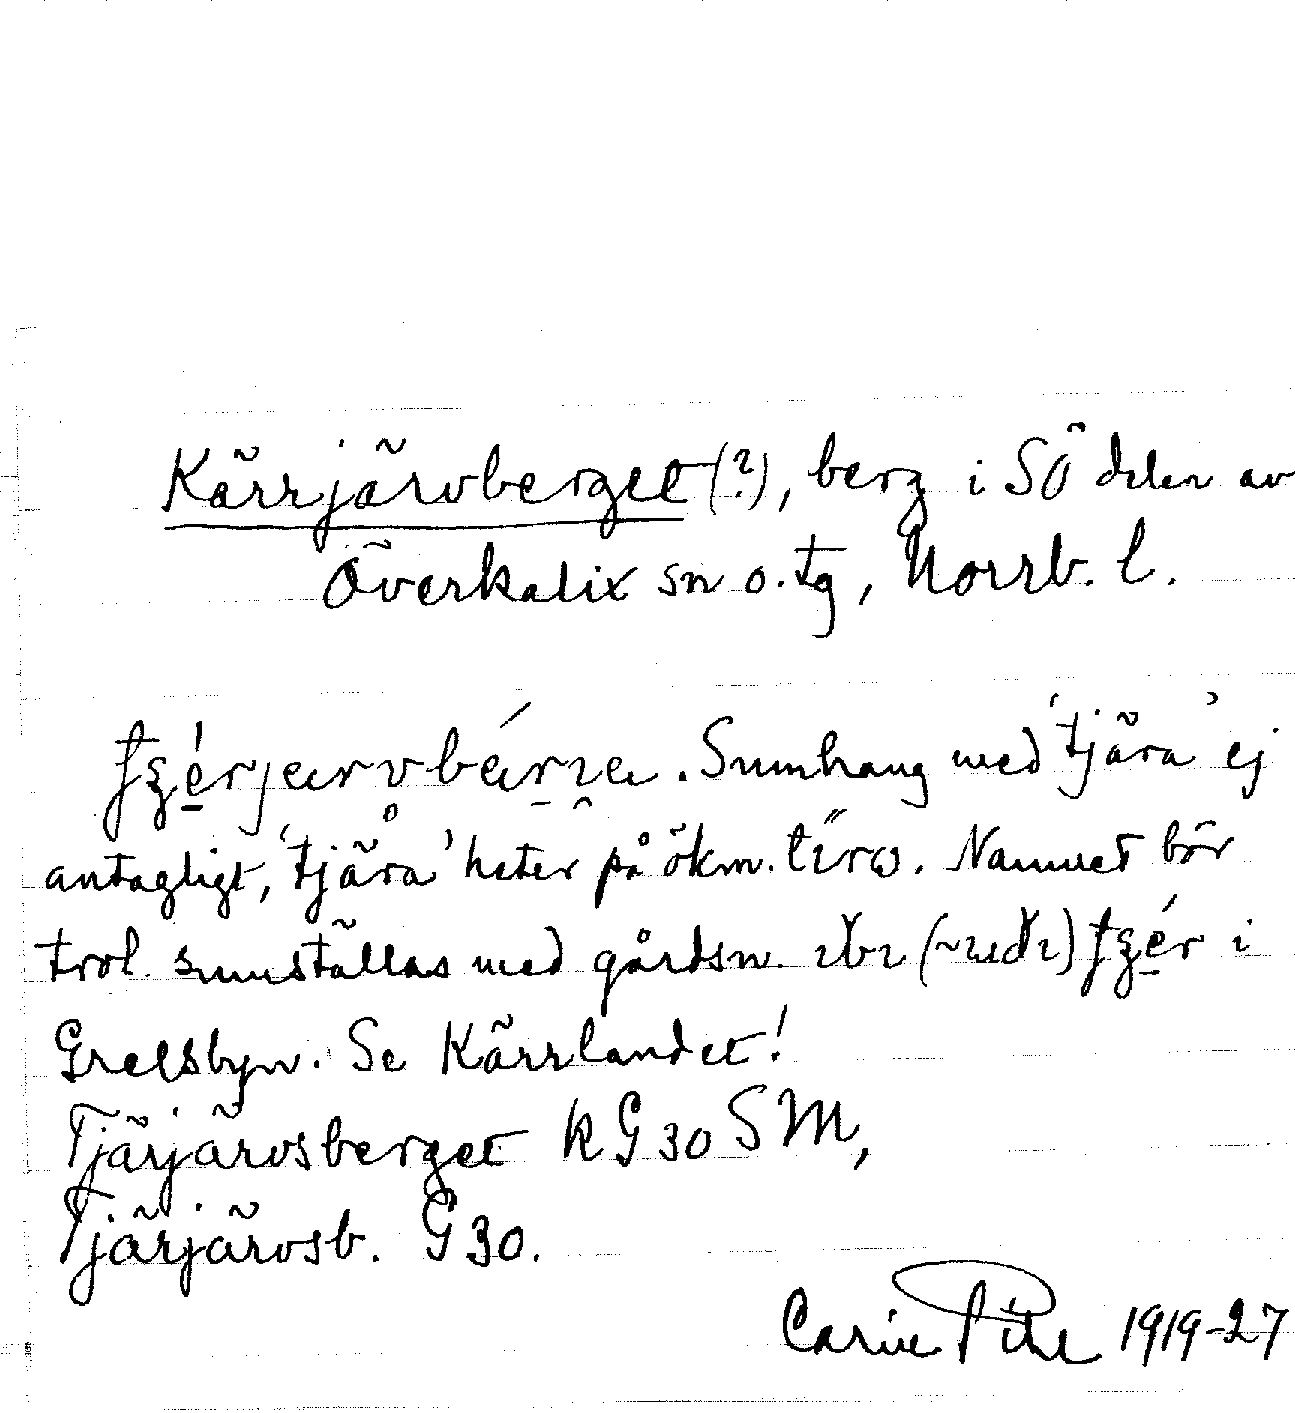 Kärrjärvberget (?), berg i SÖ delen av
Överkalix sn o. tg, Norrb. l.
Smnhang med 'tjära' ej
antagligt, 'tjära' heter på ökm. Namnet bör
trol. smnställas med gårdsn. i
Grelsbyn. Se Kärrlandet!
Tjärjärvsberget RG30SM,
Tjärjärvsb. G30.
Carin Pihl 1919-27